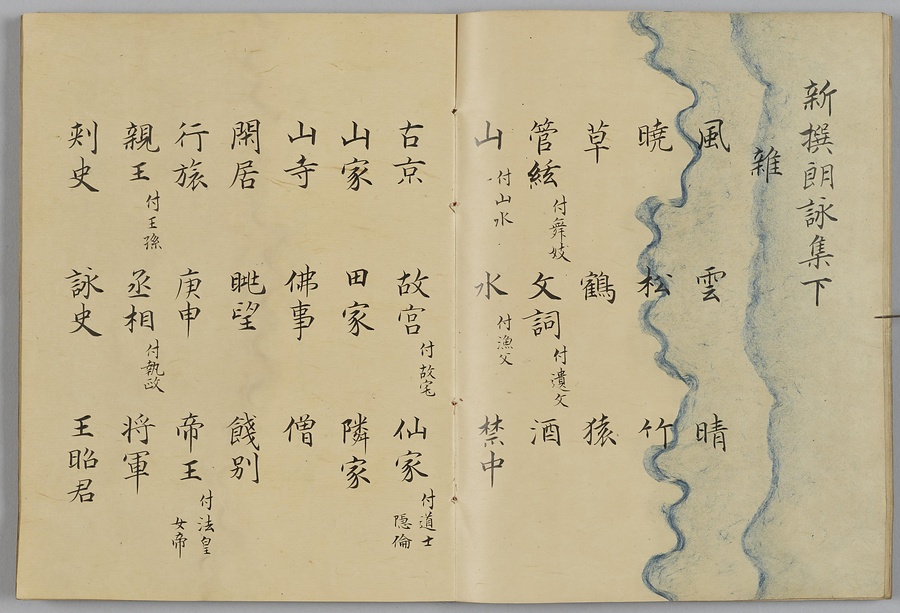 新撰朗詠集下
雜
風 雲 晴
曉 松 竹
草 鶴 猿
管絃付舞妓 文詞付遺文 酒
山付山水 水付漁父 禁中
古京 故宮付故宅 仙家付道士隠倫
山家 田家 隣家
山寺 佛事 僧
閑居 眺望 餞別
行旅 庚申 帝王付法皇女帝
親王付王孫 丞相付執政 将軍
刺史 詠史 王昭君